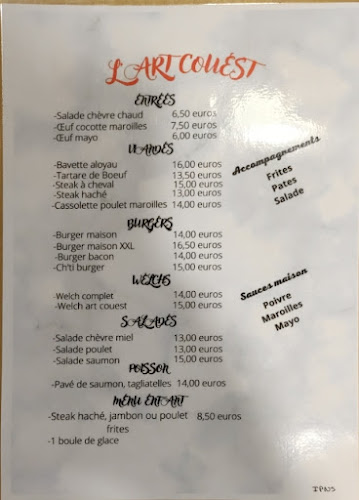 L'ART COUÉST
ENTRÉES
-Salade chèvre chaud 6,50 euros
-Œuf cocotte maroilles 7,50 euros
-Œuf mayo 6,00 euros
VIANDES
-Bavette aloyau 16,00 euros
-Tartare de Boeuf 13,50 euros
-Steak à cheval 15,00 euros
-Steak haché 13,00 euros
-Cassolette poulet maroilles 14,00 euros
Accompagnements
Frites
Pates
Salade
BURGERS
-Burger maison 14,00 euros
-Burger maison XXL 16,50 euros
-Burger bacon 14,00 euros
-Ch'ti burger 15,00 euros
WELCHS
-Welch complet 14,00 euros
-Welch art couest 15,00 euros
Sauces maison
Poivre
Maroilles
Mayo
SALADES
-Salade chèvre miel 13,00 euros
-Salade poulet 13,00 euros
-Salade saumon 15,00 euros
POISSON
-Pavé de saumon, tagliatelles 14,00 euros
MENU ENFANT
-Steak haché, jambon ou poulet 8,50 euros
frites
-1 boule de glace
IPNS